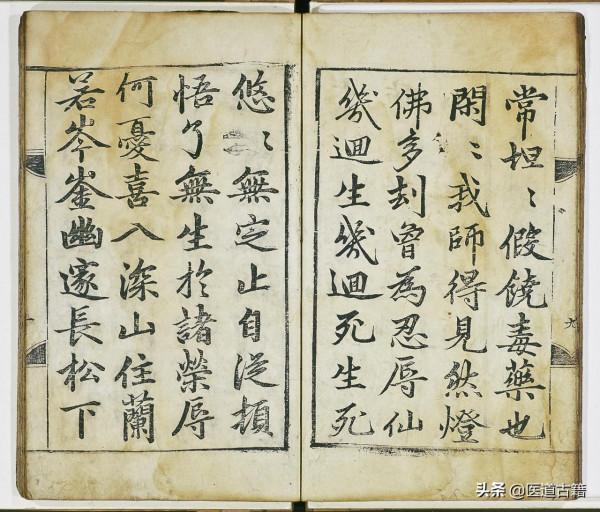 常坦〻假饒毒藥也
閑〻我師得見然燈
佛多刦曾為忍辱仙
幾迴生幾迴死生死
九
悠〻無定止自從頓
悟了無生於諸榮辱
何憂喜入深山住蘭
若岑崟幽邃長松下
头条 @医道古籍